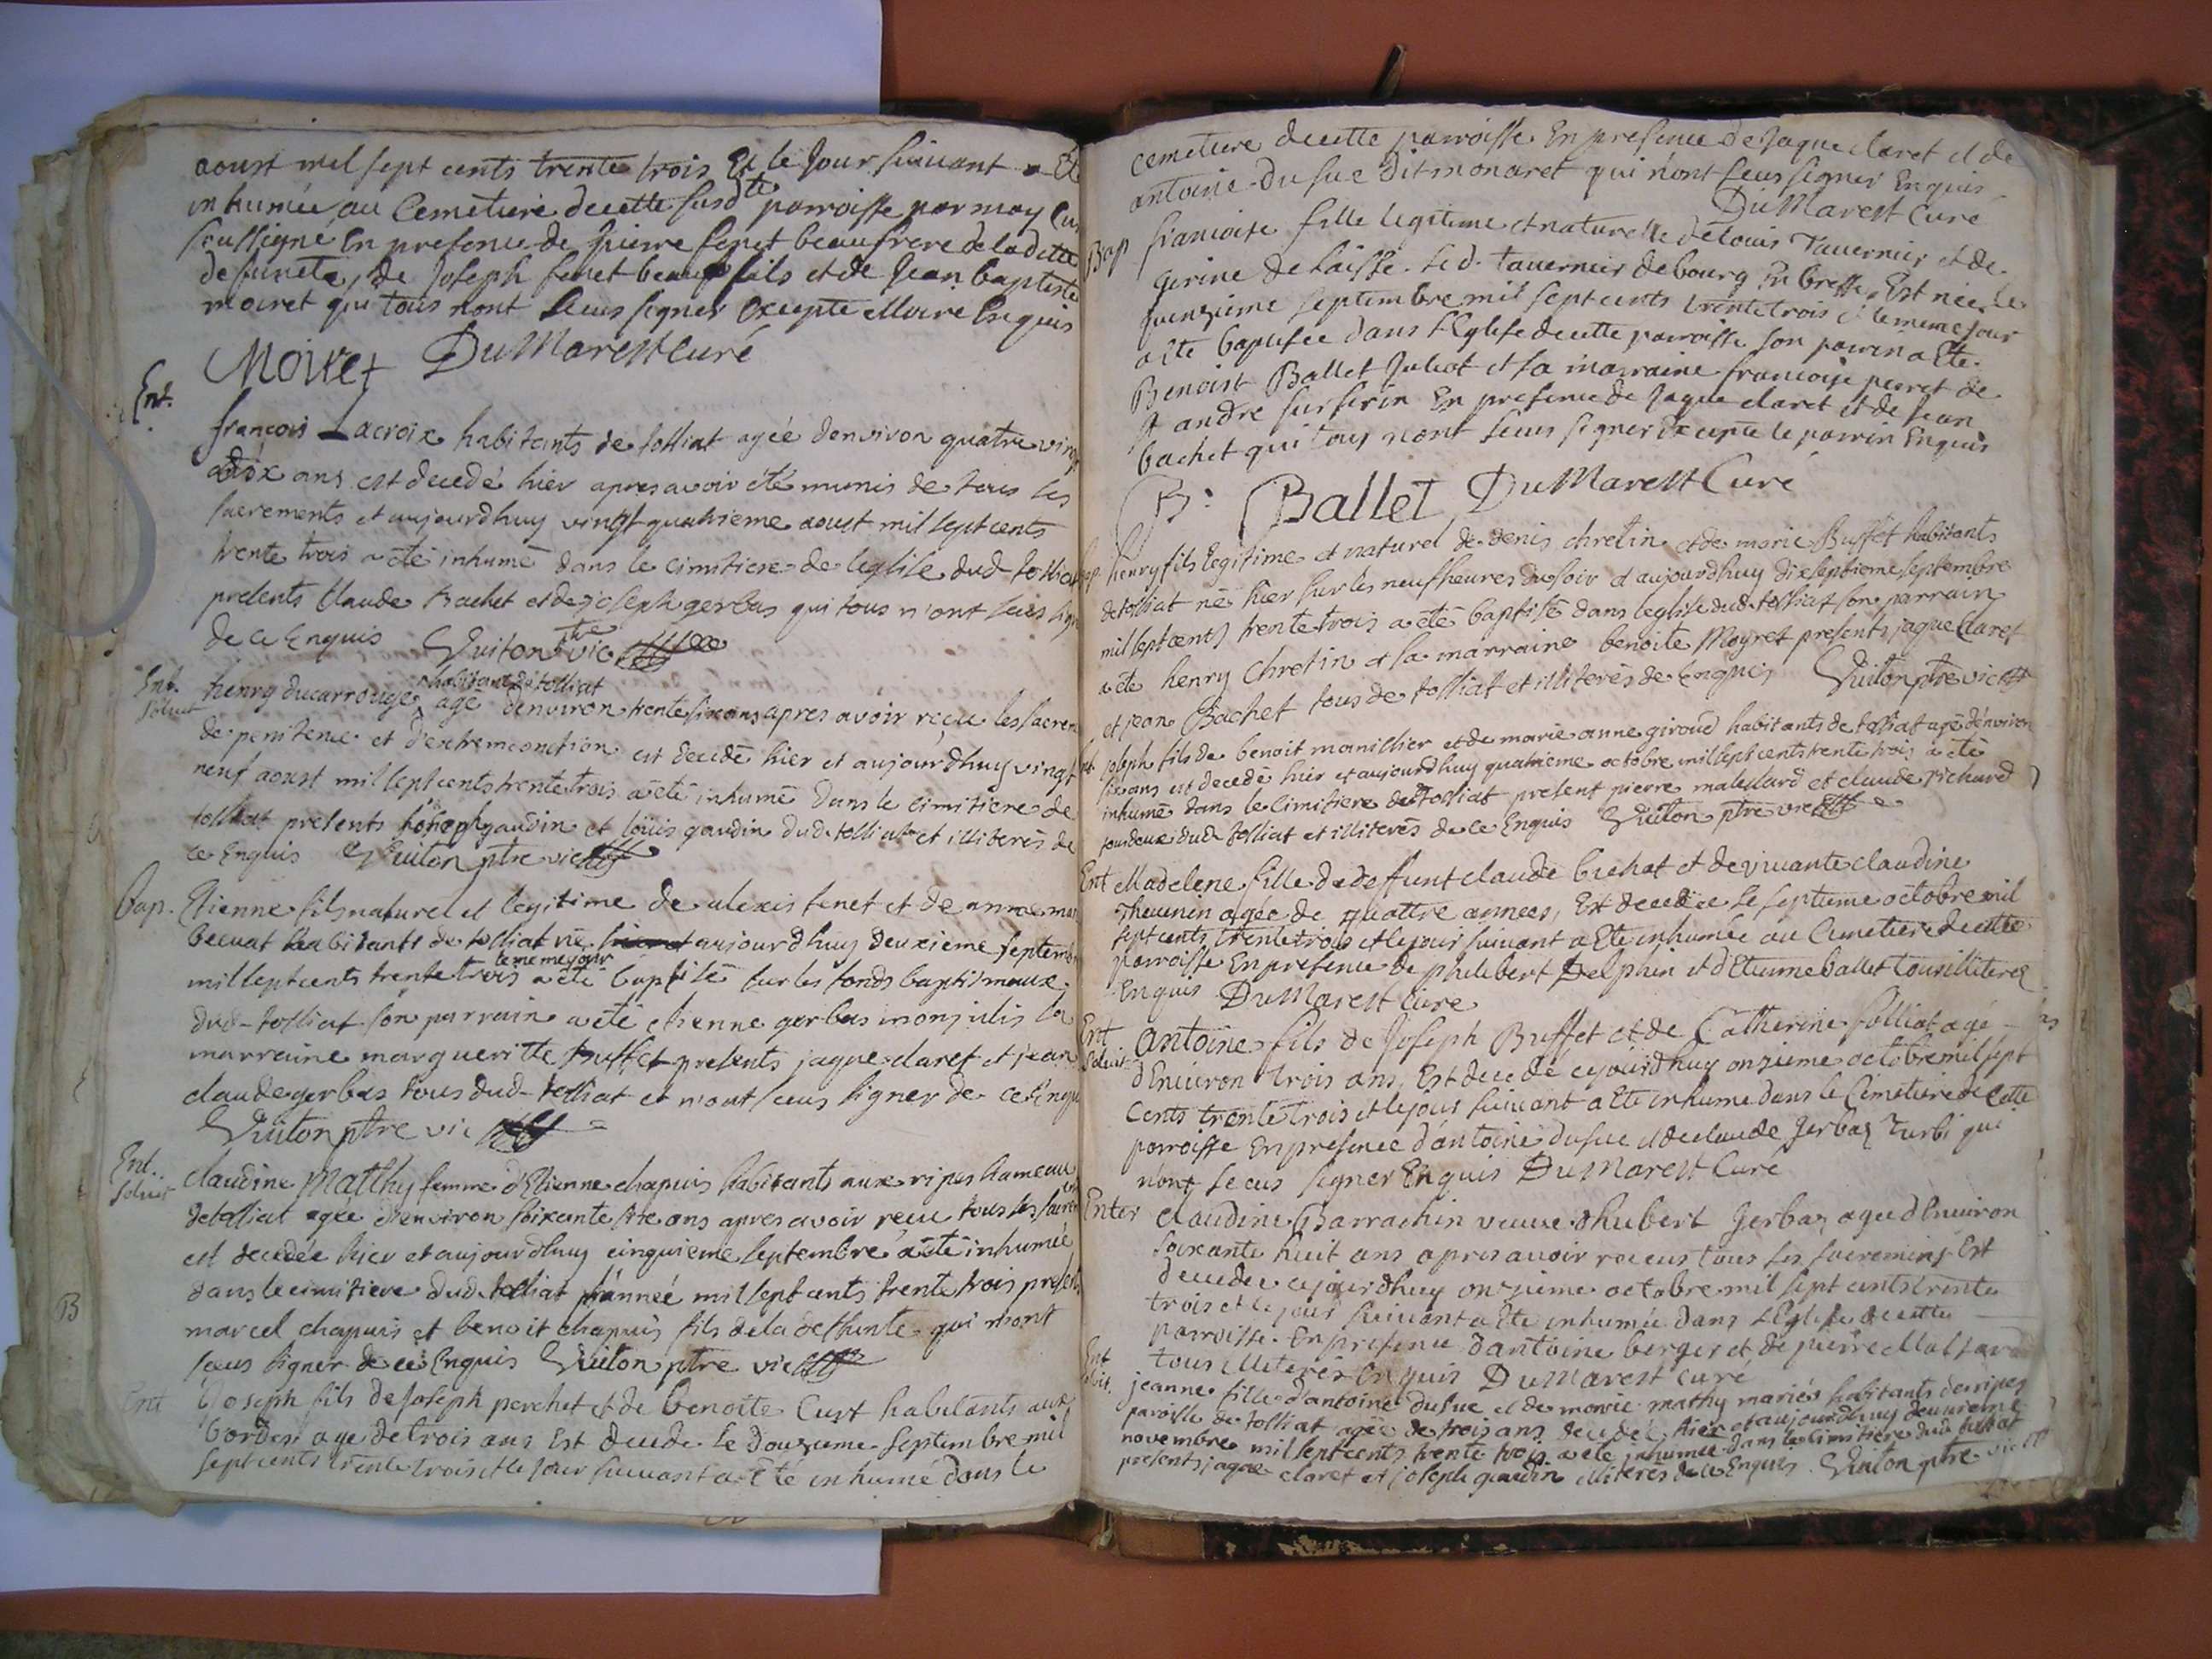 aoust mil sept cents trente trois Et le Jour suivant a Eté
inhumée au Cemetiere decette susdte parroisse par moy Cu
soussigné En presence de pierre fenet beaufrere deladitte
defuncte, de Joseph fenet beaufils et de Jean baptiste
moiret qui tous nont sceus signer Excepte Moiret Enquis
Moiret DuMarest Curé
Ent.
françois Lacroix habitants de tolliat agée denviron quatre vingt
dix ans est decedé hier apres avoir été munis de tous les
sacrements et aujourdhuy vingt quatrieme aoust mil sept cents
trente trois a été inhumé dans le cimitiere de leglise dud tolliat
presents Claude Bachet et de joseph gerbas qui tous n'ont sceus signer
de ce Enquis Guiton ptre vic
Ent. solvit
habitant de tolliat
henry ducarrouge agé denviron trente six ans apres avoir reçu les sacrem
de penitence et d'extremeonction est decedé hier et aujourdhuy vingt
neuf aoust mil sept cents trente trois a eté inhumé dans le cimitiere de
tolliat presents joseph gaudin et loüis gaudin dud tolliat et illiterés de
ce Enquis Guiton ptre vic
Bap. Etienne fils naturel et legitime de alexis fenet et de anne mar
becuat habitants de tolliat né aujourdhuy deuxieme septembre
le meme jour
mil sept cents trente trois a eté baptisé sur les fonds baptismaux
dud tolliat son parrain a eté etienne gerbas monjulis la
marraine margueritte buffet presents jaque claret et jean
claude gerbas tous dud tolliat et n'ont sceus signer de ce Enqu
Guiton ptre vic
Ent. solvit
claudine Matthy femme d'Etienne chapuis habitants aux ripes hameau
de tolliat agée denviron soixante ans apres avoir recu tous les sacrem
est decedée hier et aujourdhuy cinquieme septembre a eté inhumée
dans le cimitiere dud tolliat l'année mil sept cents trente trois presents
marcel chapuis et benoit chapuis fils de la deffunte qui n'ont
sceus signer de ce Enquis Guiton ptre vic
Ent Joseph fils de Joseph perchet et de benoite Curt habitants aux
bordes age de trois ans Est decede le douzieme septembre mil
sept cents trente trois et le jour suivant a Eté inhumé dans le
cemetiere decette parroisse En presence de Jaque claret et de
antoine dufuc dit monaret qui n'ont sceus signer Enquis
DuMarest Curé
Bap francoise fille legitime et naturelle de Louis tavernier et de
gerine delaisse. led. tavernier de bourg En bresse, Est née le
quinzieme septembre mil sept cents trente trois et le meme jour
a Eté baptisée dans l'Eglise decette parroisse son parrin a Eté
Benoist Ballet Juliat et sa marraine francoise perret de
St andre sur serin En presence de Jaque claret et de Jean
bachet qui tous n'ont sceus signer Excepté le parrin Enquis
B: Ballet DuMarest Curé
henry fils legitime et naturel de denis chretin et de marie Buffet habitants
de tolliat né hier sur les neuf heures du soir et aujourdhuy dix septieme septembre
mil sept cents trente trois a eté baptisé dans leglise dud tolliat son parrain
a été henry chretin et la marraine benoite Moyret presents jaque Claret
et jean Bachet tous de tolliat et illiterés de Enquis Guiton ptre vic
joseph fils de benoit manillier et de marie anne giroud habitants de tolliat agé denviron
six ans est decedé hier et aujourdhuy quatrieme octobre mil sept cents trente trois a eté
inhumé dans le cimitiere de tolliat present pierre maleslard et claude richard
tous deux dud tolliat et illiterés de ce Enquis Guiton ptre vic
Ent Madelene fille de deffunt claude brichat et de vivante claudine
Thevenin agée de quattre annees, Est decedée le septieme octobre mil
sept cents trente trois et le jour suivant a Eté inhumée au Cimetiere decette
parroisse En presence de philibert Delphin et d'Etienne ballet tous illiteres
Enquis DuMarest Curé
Ent solvit
antoine fils de Joseph Buffet et de Catherine folliat, agé
d'Environ trois ans, Est decedé cejourdhuy onzieme octobre mil sept
Cents trente trois et le jour suivant a Eté inhumé dans le Cemetiere de Cette
parroisse En presence d'antoine dufuc et de claude Gerbaz turbi qui
n'ont sceus signer Enquis DuMarest Curé
Enter claudine Barrachin veuve d'hubert Gerbaz agée d'Environ
soixante huit ans apres avoir receus tous les sacremens Est
decedée cejourdhuy onzieme octobre mil sept cents trente
trois et le jour suivant a Eté inhumée dans l'Eglise decette
parroisse. En presence d'antoine berger et de pierre Mal
tous illiterés Enquis DuMarest Curé
Ent solvit.
jeanne fille d'antoine dufuc et de marie mathy mariés habitants des ripes
paroisse de tolliat agée de trois ans decedée hier et aujourdhuy deuxieme
novembre mil sept cents trente trois a été inhumée dans le cimitiere dud tolliat
presents jaque claret et joseph gaudin illiterés de ce Enquis Guiton ptre vic